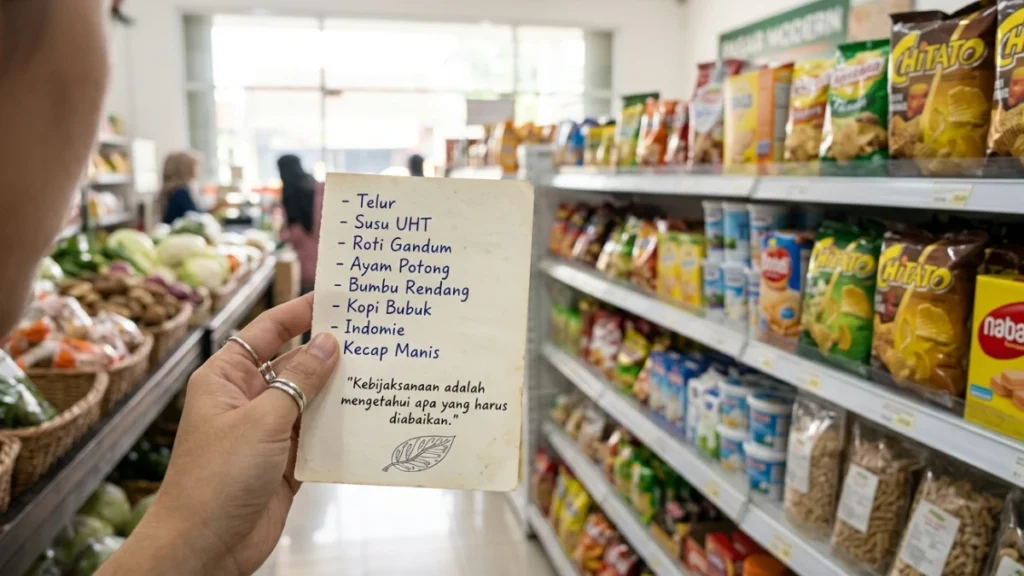 - Telur
- Susu UHT
- Roti Gandum
- Ayam Potong
- Bumbu Rendang
- Kopi Bubuk
- Indomie
- Kecap Manis
"Kebijaksanaan adalah
mengetahui apa yang harus
diabaikan."
MODERN
CHITATO
CHITATO
CHITATO
CHITATO
naba